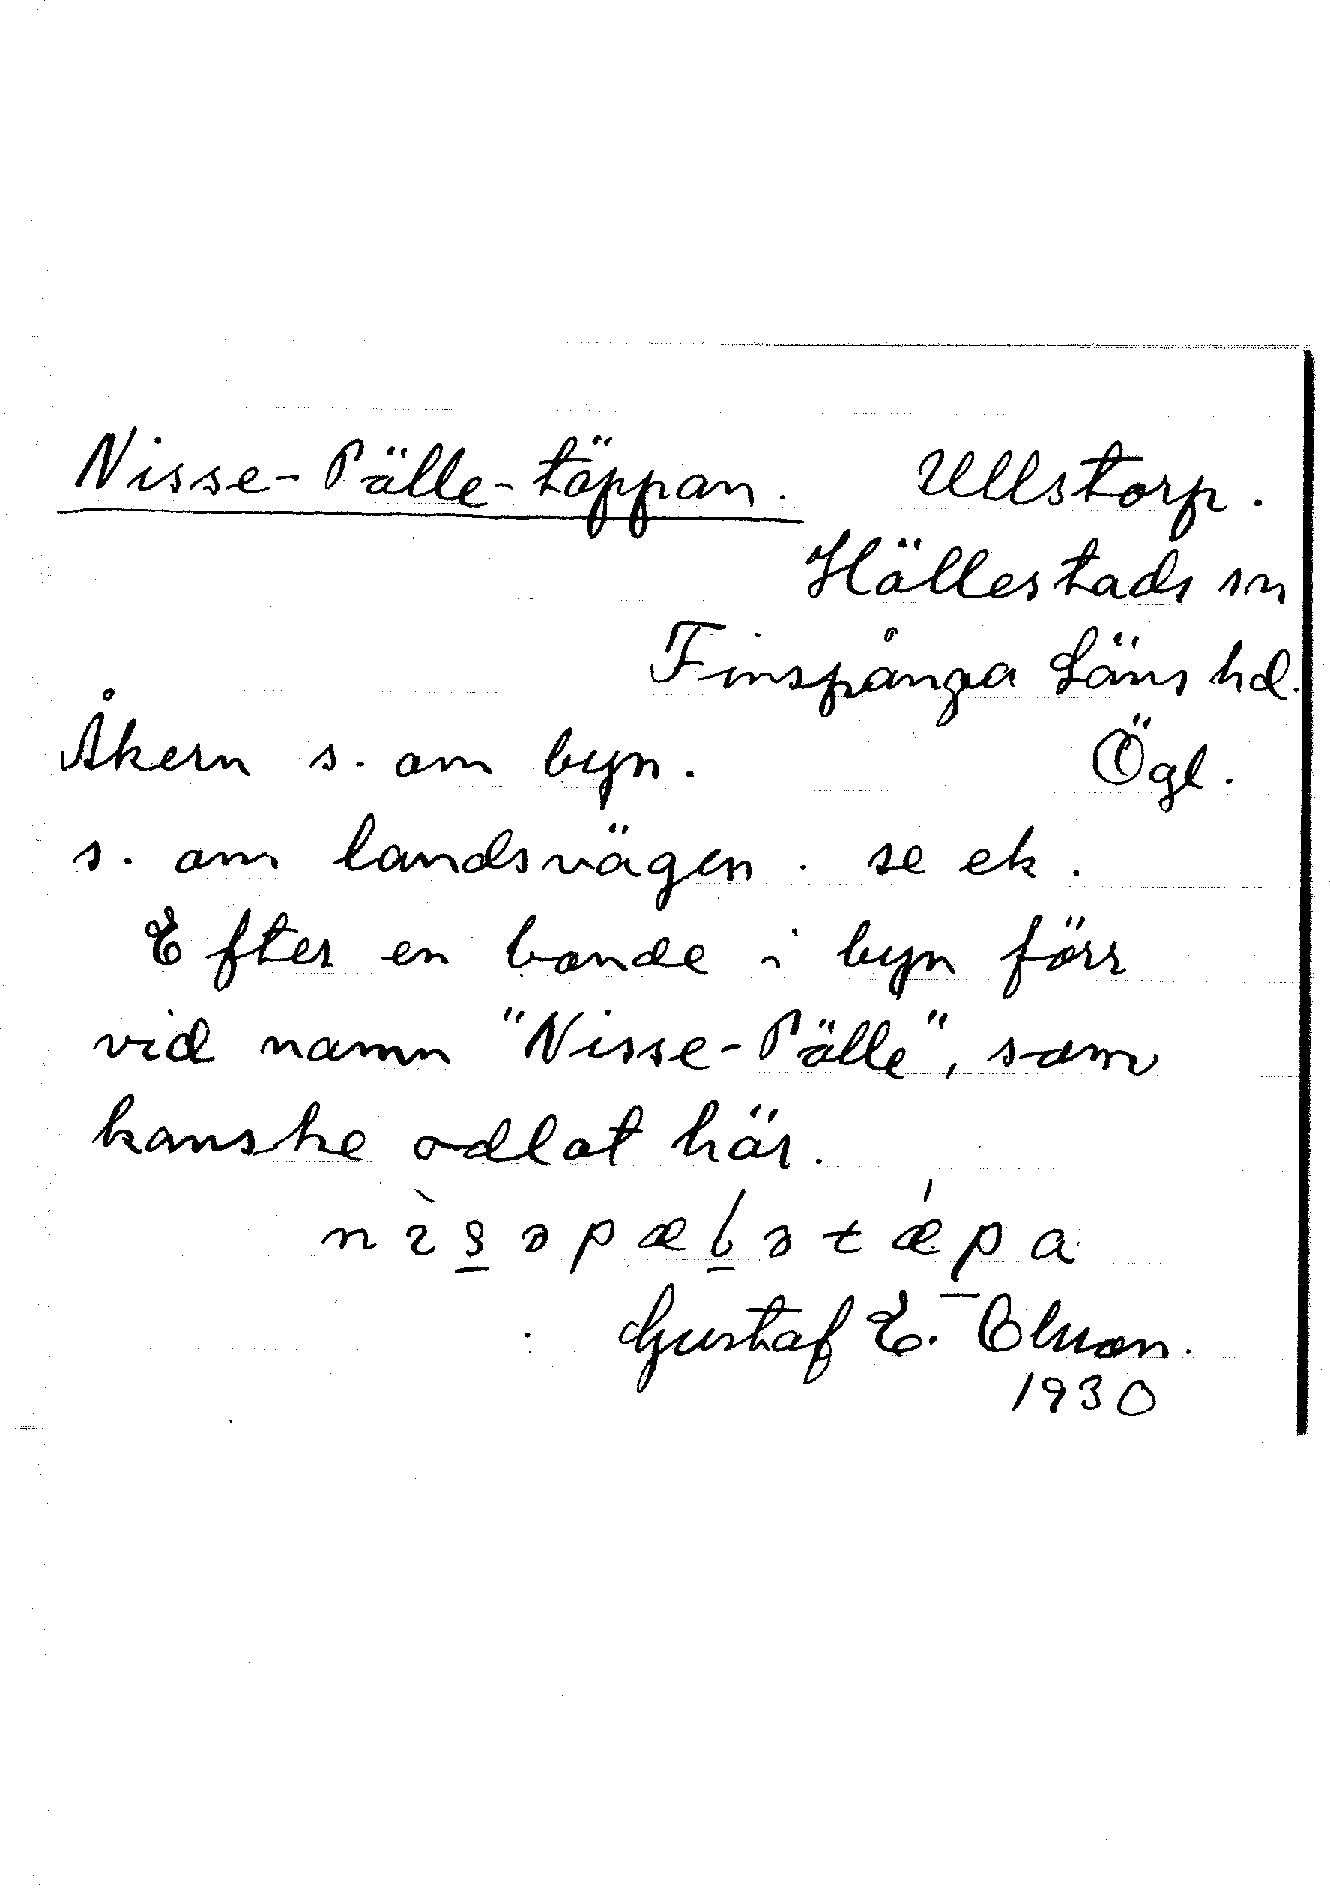 Nisse-Pälle-täppan. Ullstorp.
Hällestads sn
Finspånga Läns hd.
Åkern s. om byn. Ögl.
s. om landsvägen. se ek.
Efter en bonde i byn förr
vid namn "Nisse-Pälle", som
kanske odlat här.
Gustaf E. Olsson.
1930